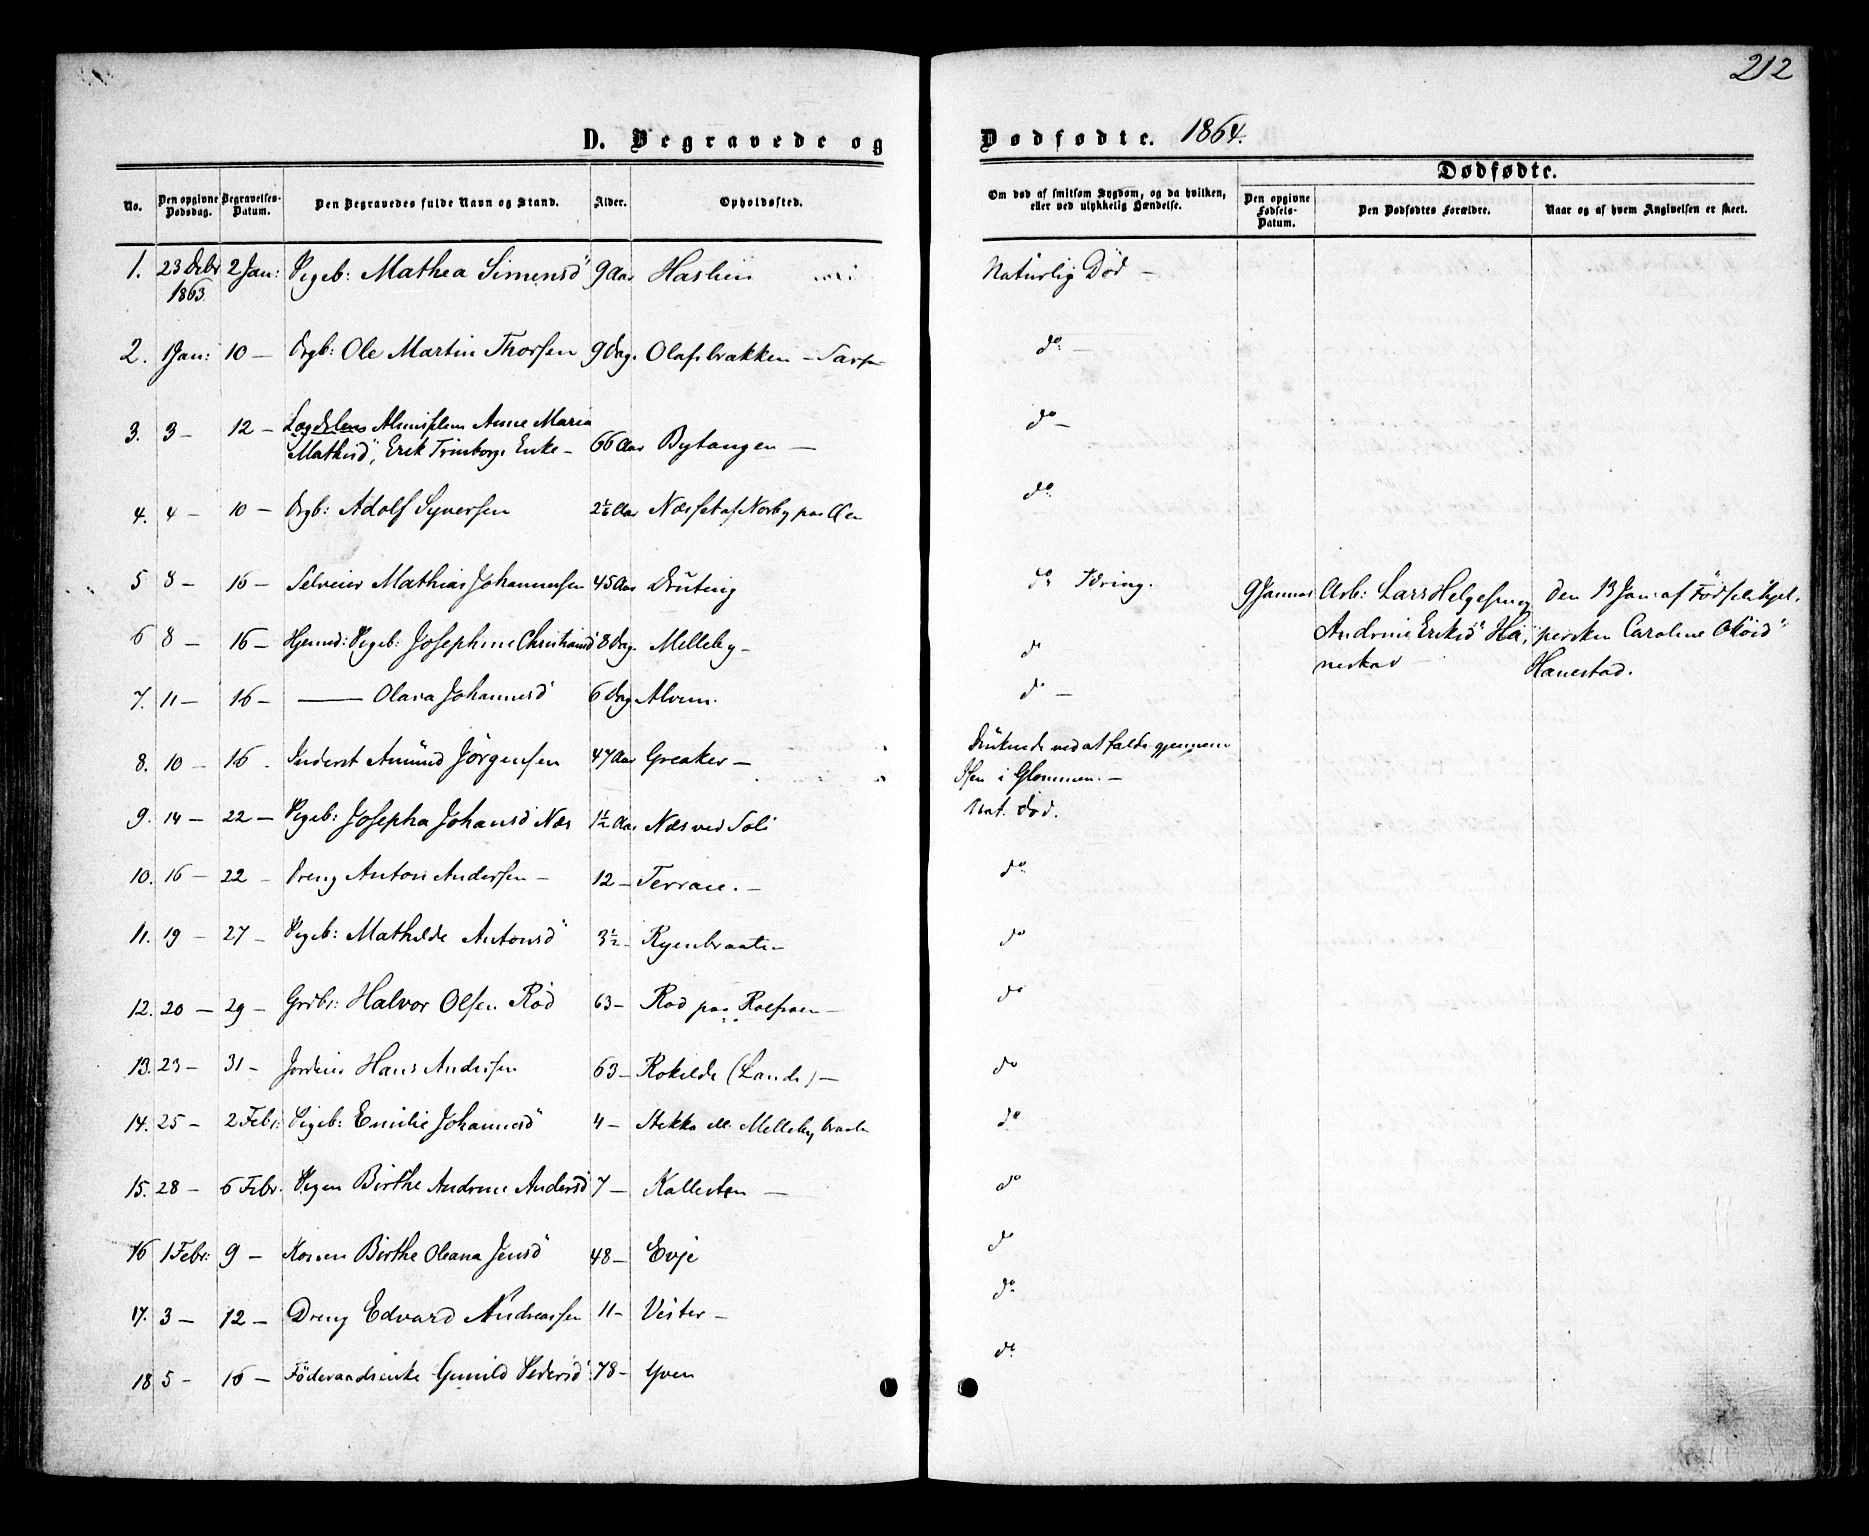 212
D. Begravede og Dødfødte. 1864.
No. Den opgivne Dødsdag. Begravelses-Datum. Den Begravedes fulde Navn og Stand. Alder. Opholdssted. Om død af smitsom Sygdom, og da hvilken, eller ved ulykkelig Hændelse.
Dødfødte.
Den opgivne Fødsels-Datum. Den Dødfødtes Forældre. Naar og af hvem Angivelsen er skeet.
1. 23 Debr 1863 2 Jan: Pigeb: Mathea Simensd 9 Aar Naturlig Død —
2. 1 Jan: 10 — Drgb: Ole Martin Thorsen 9 Dag. Olafsbrakken — do —
3. 3 — 12 — Lægdslem Anne Maria
Mathisd, Erik Enke — 66 Aar Bytangen — do —
4. 4 — 10 — Drgb: Adolf Syversen 2 1/6 Aar Næsset af Norby paa Øen do
5 8 — 16 — Selveier Mathias Johannesen 45 Aar do Tæring.
6 8 — 16 — Hjemd: Pigeb: Josephine Christiansd 8 Dag. Melleby — do
7. 11 — 16 — —— Olava Johannesd 6 Dag Alvim. do —
8. 10 — 16 — Inderst Amund Jörgensen 47 Aar Greaker — Druknede ved at falde gjennem
Isen i Glommen. —
9. 14 — 22 — Pigeb: Josepha Johansd Næs 1 1/2 Aar Næs ved Soli Nat. Død.
10. 16 — 22 — Dreng Anton Andersen — 12 — do
11. 19 — 27 — Pigeb: Mathilde Antonsd 3 1/2 — Ryenbraaten do
12. 20 — 29 — Grdbr: Halvor Olsen Röd 63 — Röd paa Rolfsøen — do
13. 23 — 31 — Hans Andersen 63 — Rokilde (Lande) — do
14. 25 — 2 Febr: Pigeb: Emilie Johannesd 4 — Stekka ell. Melleby do
15. 28 — 6 Febr. Pigen Birthe Andrine Andersd 7 — do
16 1 Febr: 9 — Konen Birthe Oleana Jensd 48 — Evje do
17. 3 — 12 — Dreng Edvard Andreassen 11 — Vister — do
18 5 — 16 — Föderaadsenke Gunild Pedersd 78 — Yven do
9 Januar Arb: Lars Helgesen og
Andrine Eriksd Ha-
neskov
den 13 Jan: af Födselshjel-
persken Caroline
Hanestad.